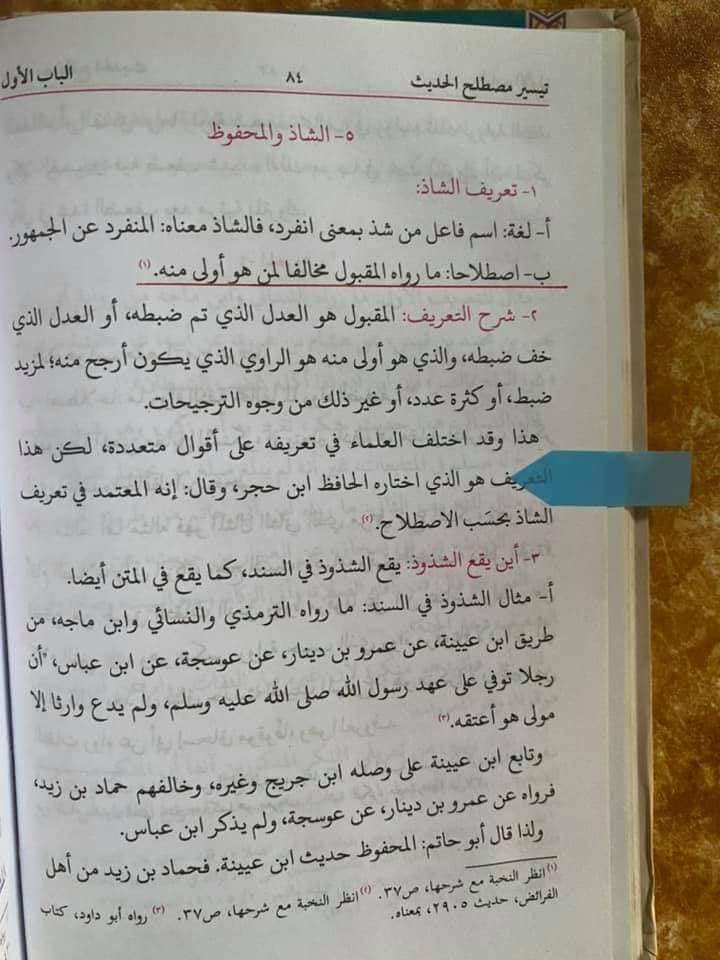 تيسير مصطلح الحديث ٨٤ الباب الأول
٥- الشاذ والمحفوظ
١- تعريف الشاذ:
أ- لغة: اسم فاعل من شذ بمعنى انفرد، فالشاذ معناه: المنفرد عن الجمهور.
ب- اصطلاحا: ما رواه المقبول مخالفا لمن هو أولى منه. (١)
٢- شرح التعريف: المقبول هو العدل الذي تم ضبطه، أو العدل الذي
خف ضبطه، والذي هو أولى منه هو الراوي الذي يكون أرجح منه؛ لمزيد
ضبط، أو كثرة عدد، أو غير ذلك من وجوه الترجيحات.
هذا وقد اختلف العلماء في تعريفه على أقوال متعددة، لكن هذا
التعريف هو الذي اختاره الحافظ ابن حجر، وقال: إنه المعتمد في تعريف
الشاذ بحسَب الاصطلاح. (٢)
٣- أين يقع الشذوذ: يقع الشذوذ في السند، كما يقع في المتن أيضا.
أ- مثال الشذوذ في السند: ما رواه الترمذي والنسائي وابن ماجه، من
طريق ابن عيينة، عن عمرو بن دينار، عن عوسجة، عن ابن عباس، "أن
رجلا توفي على عهد رسول الله صلى الله عليه وسلم، ولم يدع وارثا إلا
مولى هو أعتقه. (٣)
وتابع ابن عيينة على وصله ابن جريج وغيره، وخالفهم حماد بن زيد،
فرواه عن عمرو بن دينار، عن عوسجة، ولم يذكر ابن عباس.
ولذا قال أبو حاتم: المحفوظ حديث ابن عيينة. فحماد بن زيد من أهل
(١) انظر النخبة مع شرحها، ص٣٧. (٢) انظر النخبة مع شرحها، ص٣٧. (٣) رواه أبو داود، كتاب
الفرائض، حديث ٢٩٠٥، بمعناه.